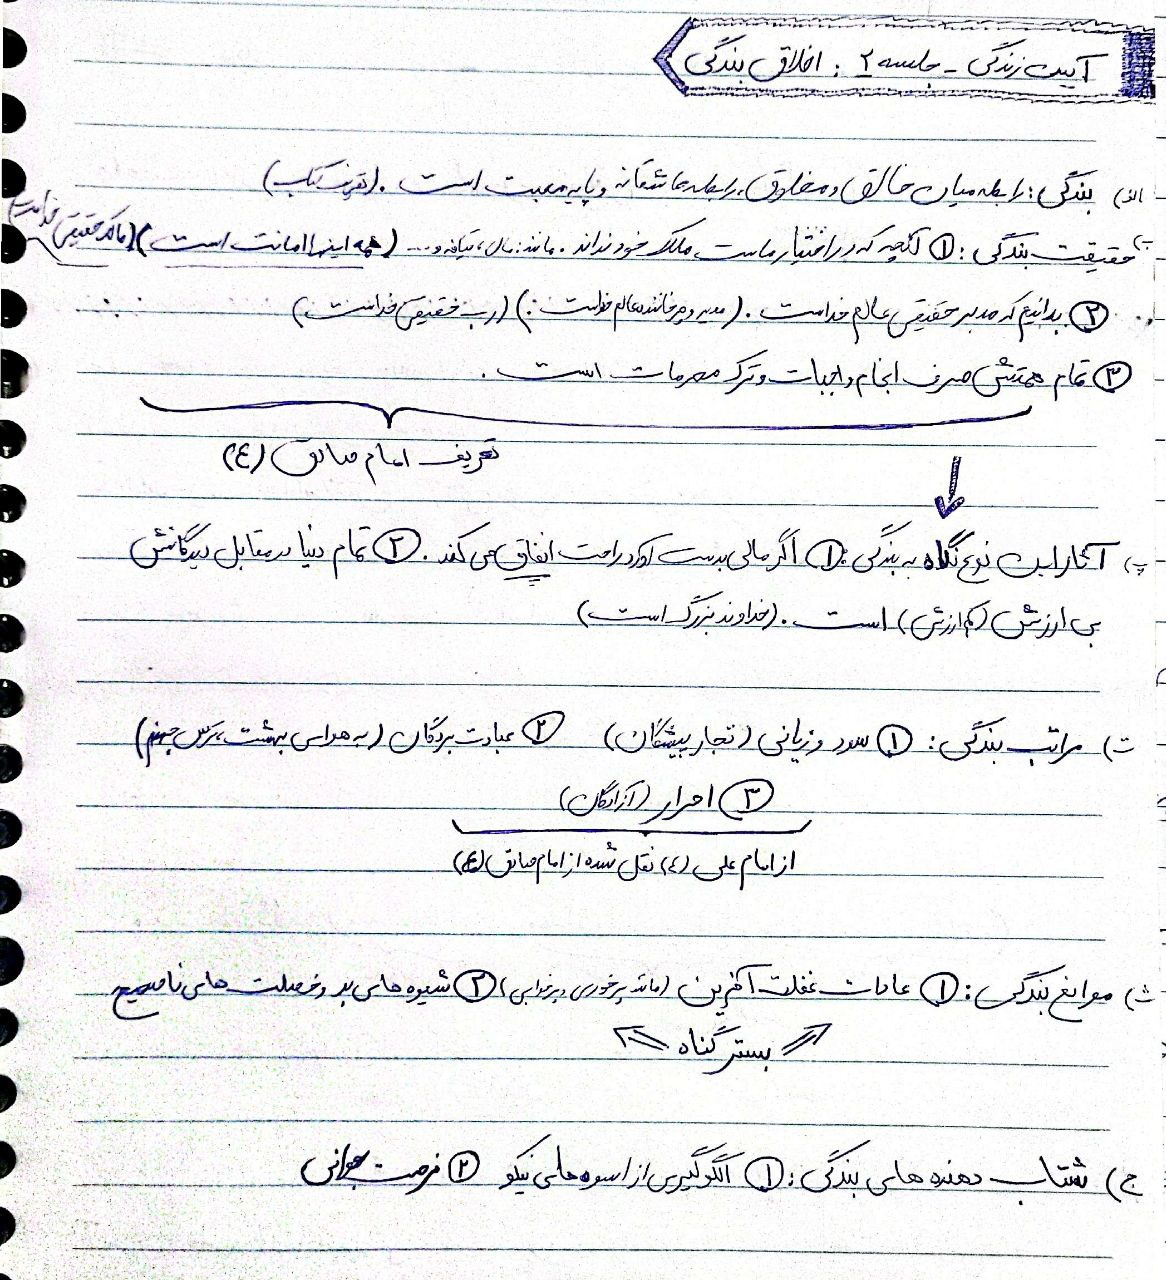 آیین زندگی - جلسه ۲ : اخلاق بندگی
الف) بندگی: رابطه میان خالق و مخلوق، رابطه عاشقانه و پایه محبت است. (تعریف کتاب)
ب) حقیقت بندگی: ① آنچه که در اختیار ماست ملک خود نداند. مانند: مال، قیافه و... (همه اینها امانت است) (مالک حقیقی خداست)
② بدانیم که مدبر حقیقی عالم خداست. (مدیر و چرخاننده عالم خداست.) (رب حقیقی خداست)
③ تمام همتش صرف انجام واجبات و ترک محرمات است.
تعریف امام صادق (ع)
پ) آثار این نوع نگاه به بندگی: ① اگر مالی بدست آورد راحت انفاق می کند. ② تمام دنیا در مقابل دیدگانش
بی ارزش (کم ارزش) است. (خداوند بزرگ است)
ت) مراتب بندگی: ① سود و زیانی (تجار پیشگان) ② عبادت بردگان (به هوای بهشت، ترس جهنم)
③ احرار (آزادگان)
از امام علی (ع) نقل شده از امام صادق (ع)
ث) موانع بندگی: ① عادات غفلت آفرین (مانند پرخوری و پرخوابی) ② شیوه های بد و خصلت های ناصحیح
بستر گناه
ج) شتاب دهنده های بندگی: ① الگوگیری از اسوه های نیکو ② فرصت جوانی